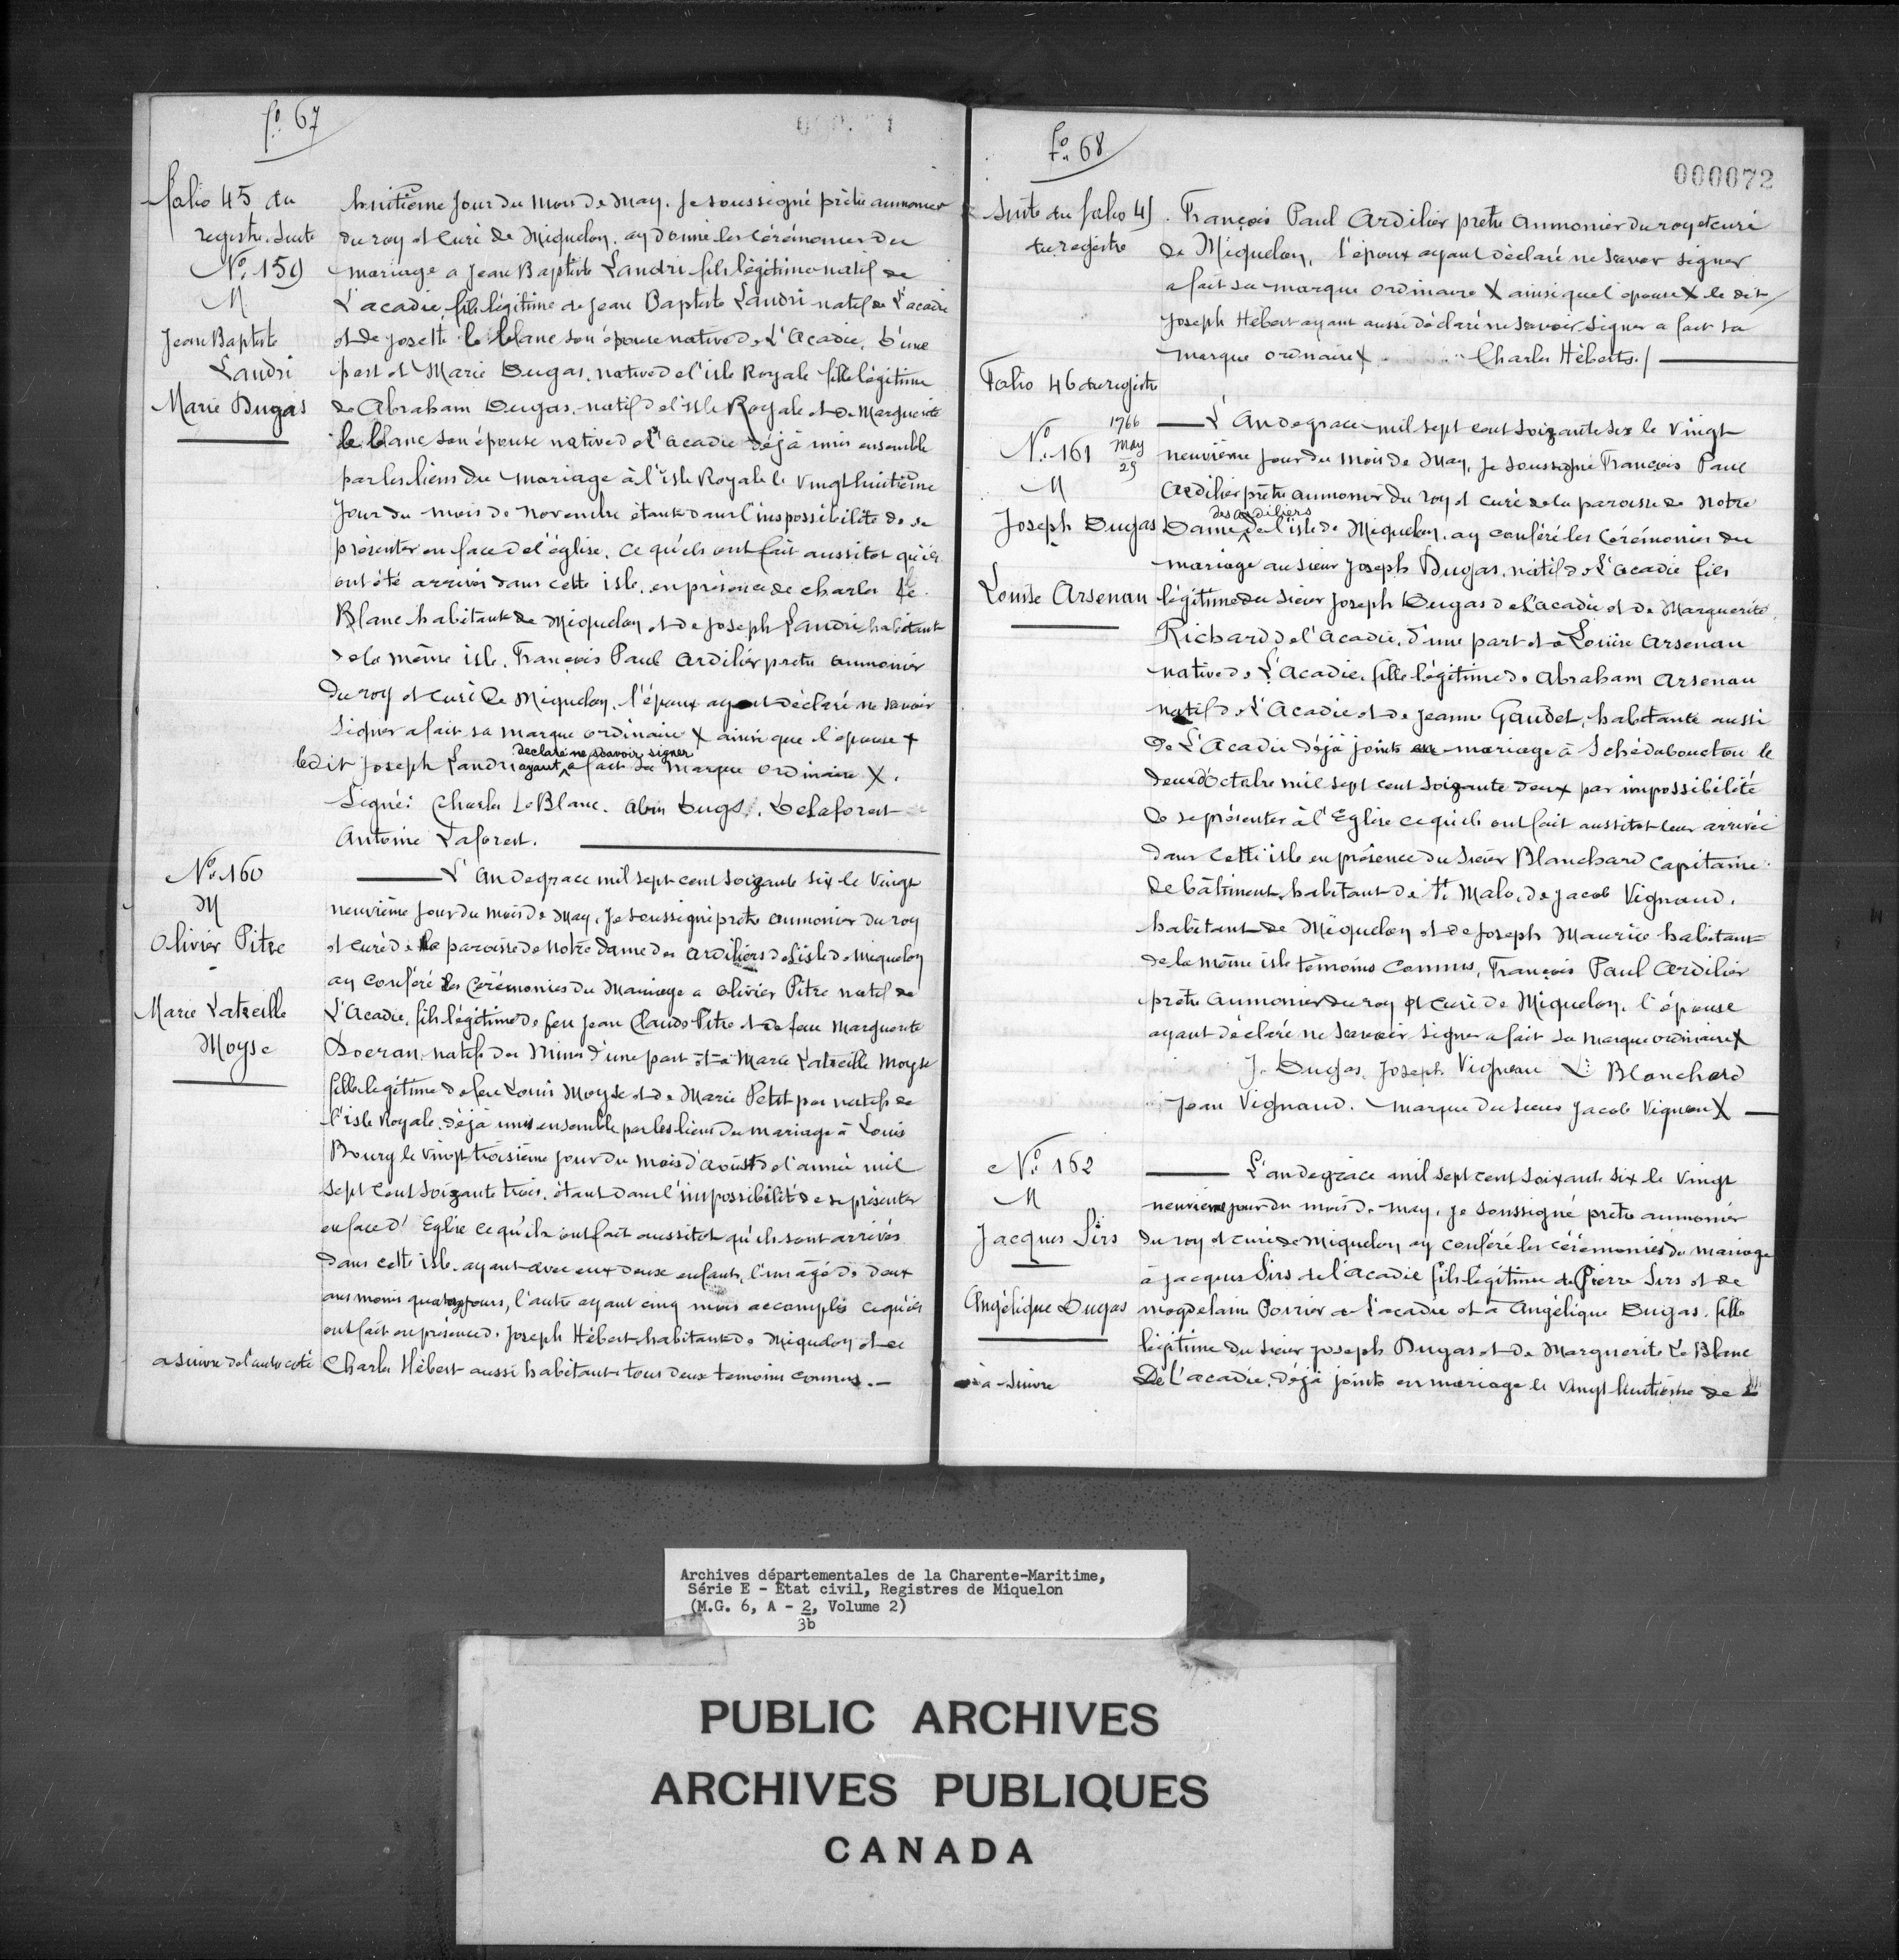 fo. 67
folio 45 du
registre. Suite
No. 159
M
Jean Baptiste
Landri
Marie Dugas
huitième jour du mois de may. Je soussigné prêtre aumonier
du roy et Curé de Miquelon, ay donné les cérémonies du
mariage a Jean Baptiste Landri fils légitime natif de
L'acadie, fils légitime de Jean Baptiste Landri natif de L'acadie
et de Josette le blanc son épouse native de L'Acadie, d'une
part et Marie Dugas, native de l'isle Royale fille légitime
de Abraham Dugas, natif de l'isle Royale et de Marguerite
le blanc son épouse native de l'acadie déjà unis ensemble
par les liens du mariage à l'isle Royale le vingt huitième
Jour du mois de novembre étant dans l'impossibilité de se
présenter en face de l'église, ce qu'ils ont fait aussitot qu'ils
ont été arrivés dans cette isle, en présence de charles le
Blanc habitant de Miquelon et de Joseph Landri habitant
de la même isle. François Paul Ardilier pretre aumonier
Du roy et Curé de Miquelon, l'époux ayant déclaré ne savoir
signer a fait sa marque ordinaire X ainsi que l'épouse +
declaré ne scavoir signer
ledit Joseph Landri ayant a fait sa marque ordinaire X.
Signé: Charles LeBlanc. Abin Dugs. Delaforest
Antoine Laforest.
No. 160
M
Olivier Pitre
Marie Latreille
Moyse
L'an de grace mil sept cent soizante six le vingt
neuvième jour du mois de May, Je soussigné prêtre aumonier du roy
et curé de la paroisse de Notre Dame des Ardiliers de L'isle de Miquelon
ay conféré les Cérémonies du Mariage a Olivier Pitre natif de
L'Acadie, fils légitime de feu Jean Claude Pitre et de feue Marguerite
Doeran, natifs des Mines d'une part et à Marie Latreille Moyse
fille légitime de feu Louis Moyse et de Marie Petit pas natifs de
l'isle Royale, déjà unis ensemble par les liens du mariage à Louis
Bourg le vingt troisième jour du mois d'aoust de l'année mil
sept cent soizante trois, étant dans l'impossibilité de se présenter
en face d'Eglise ce qu'ils ont fait aussitot qu'ils sont arrivés
dans cette isle, ayant avec eux deux enfants, l'un agé de deux
ans moins quatorze jours, l'autre ayant cinq mois accomplis ce qu'ils
ont fait en présence de Joseph Hébert habitant de Miquelon et de
a suivre de l'autre coté
Charles Hébert aussi habitant tous deux temoins connus.
fo. 68
000072
Suite du folio 45
du registre
François Paul Ardilier pretre Aumonier du roy et curé
de Miquelon, l'époux ayant déclaré ne savoir signer
a fait sa marque ordinaire X ainsi que l'épouse X le dit
Joseph Hébert ayant aussi déclaré ne savoir signer a fait sa
marque ordinaire X Charles Héberts./
Folio 46 du registre
1766
May
29
No. 161
M
Joseph Dugas
Louise Arsenau
L'An de grace mil sept cent soizante six le vingt
neuvième jour du mois de May, Je soussigné François Paul
Ardilier prêtre aumonier du roy et curé de la paroisse de Notre
des ardiliers
Dame de l'isle de Miquelon, ay conféré les Cérémonies du
mariage au sieur Joseph Dugas, natif de L'acadie fils
légitime du sieur Joseph Dugas de L'acadie et de Marguerite
Richard de l'Acadie, d'une part et à Louise Arsenau
native de L'Acadie, fille légitime de Abraham Arsenau
natif de L'Acadie et de Jeanne Gaudet, habitante aussi
de L'Acadie déjà joints en mariage à Schédabouctou le
deux d'Octobre mil sept cent soizante deux par impossibilité
de se présenter à l'Eglise ce qu'ils ont fait aussitot leur arrivée
dans cette isle en présence du Sieur Blanchard Capitaine
de bâtiment, habitant de St. Malo, de Jacob Vignaud,
habitant de Miquelon et de Joseph Maurice habitant
de la même isle témoins connus, François Paul Ardilier
prêtre aumonier du roy et curé de Miquelon, l'épouse
ayant déclaré ne savoir signer a fait sa marque ordinaire X
J. Dugas, Joseph Vigneau L. Blanchard
Jean Vignaud. marque du sieur Jacob Vigneau X
No. 162
M
Jacques Sirs
Angélique Dugas
L'an de grace mil sept cent soixante six le vingt
neuvième jour du mois de may, je soussigné pretre aumonier
du roy et curé de Miquelon ay conféré les cérémonies du mariage
à Jacques Sirs de l'acadie fils légitime de Pierre Sirs et de
magdelaine Poirier de l'acadie et à Angélique Dugas, fille
légitime du sieur Joseph Dugas et de Marguerite Le Blanc
à suivre
De L'acadie, déjà joints en mariage le vingt huitième de
Archives départementales de la Charente-Maritime,
Série E - Etat civil, Registres de Miquelon
(M.G. 6, A - 2, Volume 2)
3b
PUBLIC ARCHIVES
ARCHIVES PUBLIQUES
CANADA